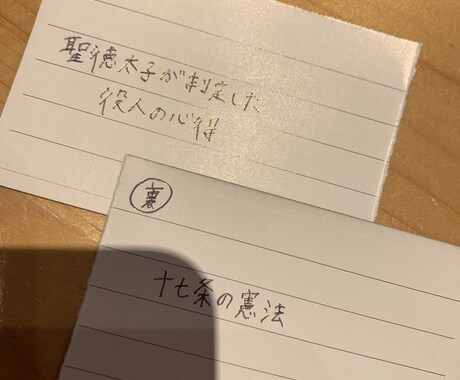 聖徳太子が制定した
役人の心得
裏
十七条の憲法